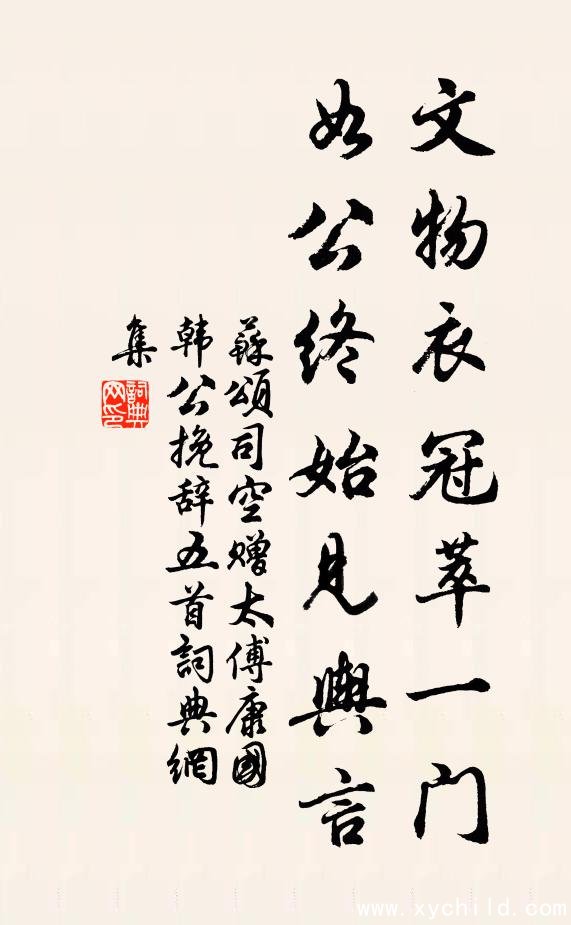 文物衣冠萃一门
如公终始见舆言
蘇颂司空赠太傅康國
韩公挽辞五首詞典網
集
詞典網印
www.xychild.com